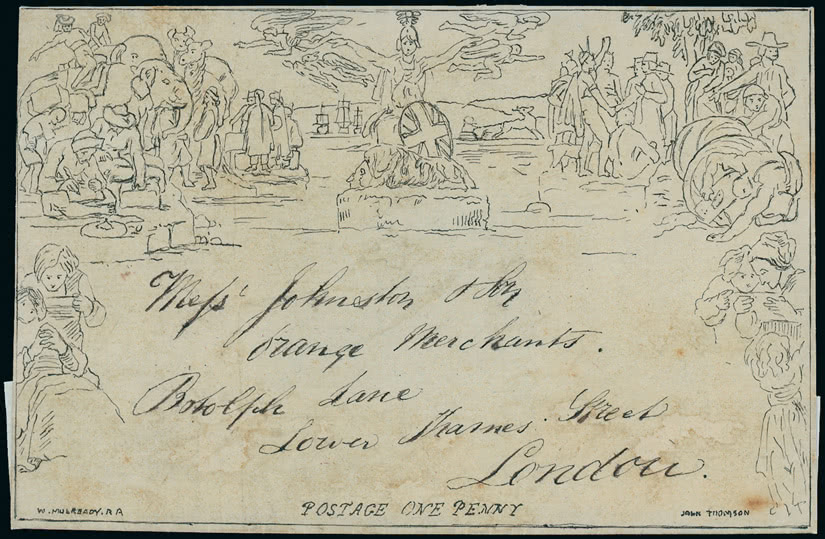 Messrs Johnston & Son
Orange Merchants.
Botolph Lane
Lower Thames Street
London.
W. MULREADY. R A
POSTAGE ONE PENNY
JOHN THOMSON